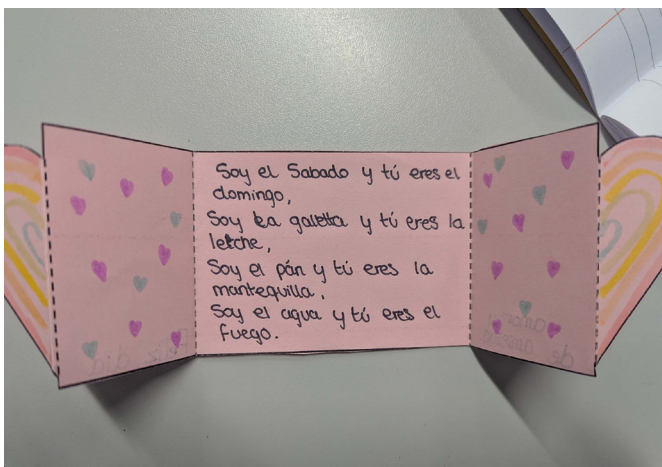 Soy el Sabado y tú eres el
domingo,
Soy la galletta y tú eres la
letche,
Soy el pán y tú eres la
mantequilla,
Soy el agua y tú eres el
fuego.